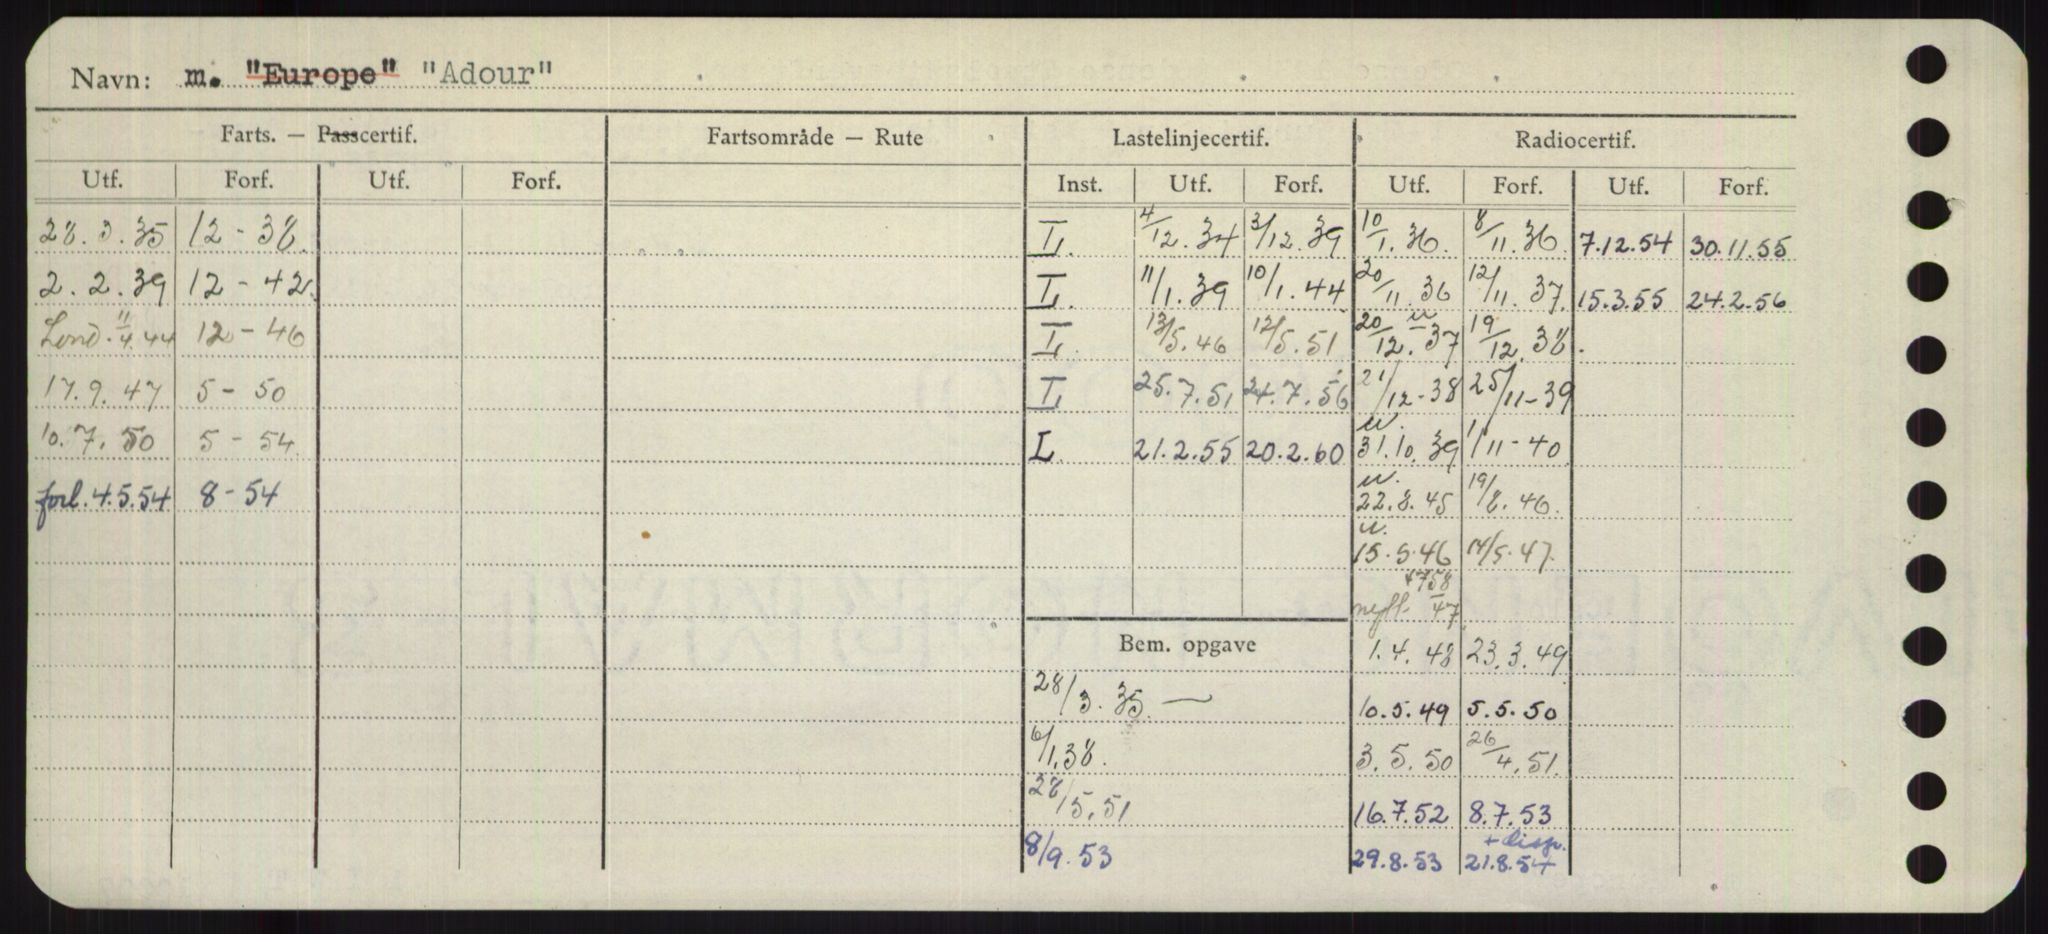 Navn: m. "Europe" "Adour"
Farts. — Passcertif. Fartsområde — Rute Lastelinjecertif. Radiocertif.
Utf. Forf. Utf. Forf. Inst. Utf. Forf. Utf. Forf. Utf. Forf.
28.3.35 12-38 L. 4/12.34 3/12.39 10/1.36. 8/11.36. 7.12.54 30.11.55
2.2.39 12-42. L. 11/1.39 10/1.44 20/11.36 12/11.37. 15.3.55 24.2.56
Lond. 11/4.44 12-46 L. 13/5.46 12/5.51 u 20/12.37 19/12.38.
17.9.47 5-50 L 25.7.51 24.7.56 21/12-38 25/11-39
10.7.50 5-54 L. 21.2.55 20.2.60 u. 31.10.39 1/11-40
forl.4.5.54 8-54 u. 22.8.45 19/8.46.
u. 15.5.46 14/5.47.
47
Bem. opgave 1.4.48 23.3.49
28/3.35. — 10.5.49 5.5.50
6/1.38. 3.5.50 26/4.51.
28/5.51 16.7.52 8.7.53
8/9.53 29.8.53 + disp. 21.8.54